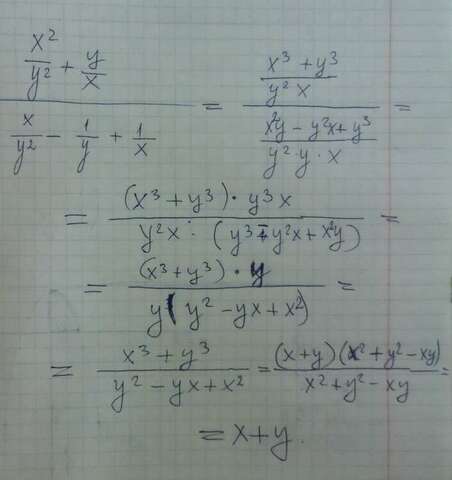 (x²/y² + y/x)/(x/y² - 1/y + 1/x) = ((x³ + y³)/(y² x))/((x²y - y²x + y³)/(y² · y · x)) =
= ((x³ + y³) · y³ x)/(y²x · (y³ - y²x + x²y)) =
= ((x³ + y³) · y)/(y(y² - yx + x²)) =
= (x³ + y³)/(y² - yx + x²) = ((x+y)(x² + y² - xy))/(x² + y² - xy) =
= x + y.